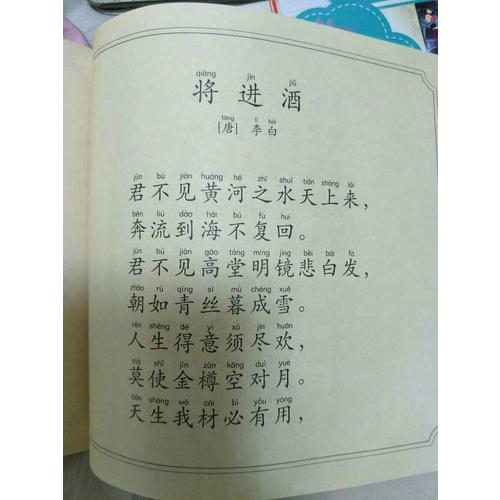 qiāng jìn jiǔ
将进酒
táng lǐ bái
[唐] 李白
jūn bú jiàn huáng hé zhī shuǐ tiān shàng lái
君不见黄河之水天上来，
bēn liú dào hǎi bú fù huí
奔流到海不复回。
jūn bú jiàn gāo táng míng jìng bēi bái fà
君不见高堂明镜悲白发，
zhāo rú qīng sī mù chéng xuě
朝如青丝暮成雪。
rén shēng dé yì xū jìn huān
人生得意须尽欢，
mò shǐ jīn zūn kōng duì yuè
莫使金樽空对月。
tiān shēng wǒ cái bì yǒu yòng
天生我材必有用，